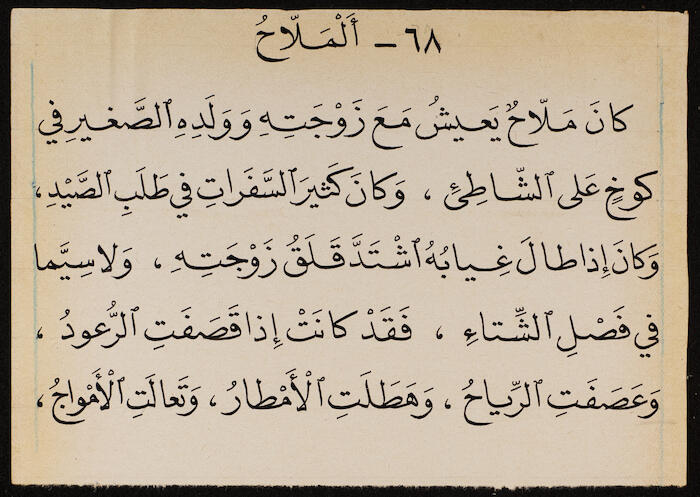 ٦٨ – أَلْمَلّاحُ
كانَ مَلّاحٌ يَعيشُ مَعَ زَوْجَتِهِ وَوَلَدِهِ ٱلصَّغيرِ في
كوخٍ عَلى ٱلشّاطِئِ ، وَكانَ كَثيرَ ٱلسَّفَراتِ في طَلَبِ ٱلصَّيْدِ ،
وَكانَ إِذا طالَ غِيابُهُ ٱشْتَدَّ قَلَقُ زَوْجَتِهِ ، وَلا سِيَّما
في فَصْلِ ٱلشِّتاءِ ، فَقَدْ كانَتْ إِذا قَصَفَتِ ٱلرُّعودُ ،
وَعَصَفَتِ ٱلرِّياحُ ، وَهَطَلَتِ ٱلْأَمْطارُ ، وَتَعالَتِ ٱلْأَمْواجُ ،